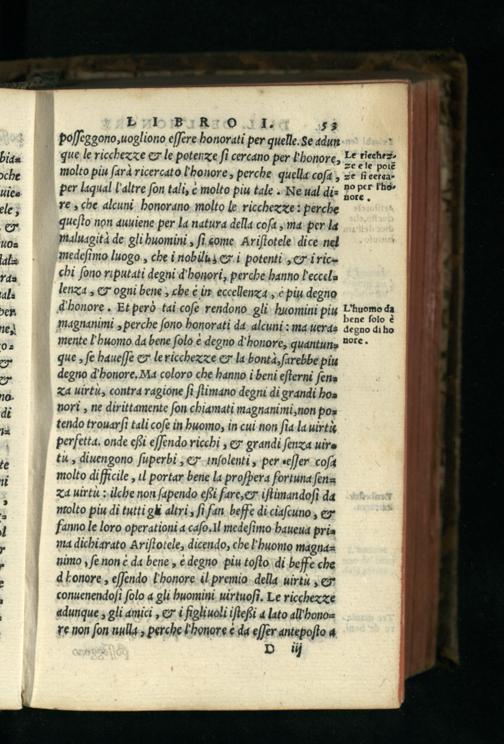 LIBRO I. 53
posseggono, uogliono essere honorati per quelle. Se adun
que le ricchezze & le potenze si cercano per l'honore,
molto piu sarà ricercato l'honore, perche quella cosa,
per laqual l'altre son tali, è molto piu tale. Ne ual di=
re, che alcuni honorano molto le ricchezze: perche
questo non auuiene per la natura della cosa, ma per la
maluagità de gli huomini, si come Aristotele dice nel
medesimo luogo, che i nobili, & i potenti, & i ric=
chi sono riputati degni d'honori, perche hanno l'eccel=
lenza, & ogni bene, che è in eccellenza, è piu degno
d'honore. Et però tai cose rendono gli huomini piu
magnanimi, perche sono honorati da alcuni: ma uera=
mente l'huomo da bene solo è degno d'honore, quantun=
que, se hauesse & le ricchezze & la bontà, sarebbe piu
degno d'honore. Ma coloro che hanno i beni esterni sen=
za uirtù, contra ragione si stimano degni di grandi ho=
nori, ne dirittamente son chiamati magnanimi, non po=
tendo trouarsi tali cose in huomo, in cui non sia la uirtù
perfetta. onde eßi essendo ricchi, & grandi senza uir=
tù, diuengono superbi, & insolenti, per esser cosa
molto difficile, il portar bene la prospera fortuna sen=
za uirtù: ilche non sapendo eßi fare, & istimandosi da
molto piu di tutti gli altri, si fan beffe di ciascuno, &
fanno le loro operationi a caso. Il medesimo haueua pri=
ma dichiarato Aristotele, dicendo, che l'huomo magna=
nimo, se non è da bene, è degno piu tosto di beffe che
d'honore, essendo l'honore il premio della uirtù, &
conuenendosi solo a gli huomini uirtuosi. Le ricchezze
adunque, gli amici, & i figliuoli isteßi a lato all'hono=
re non son nulla, perche l'honore è da esser anteposto a
D iij
Le ricchez=
ze e le potẽ
ze si cerca=
no per l'ho=
nore.
L'huomo da
bene solo è
degno di ho
nore.